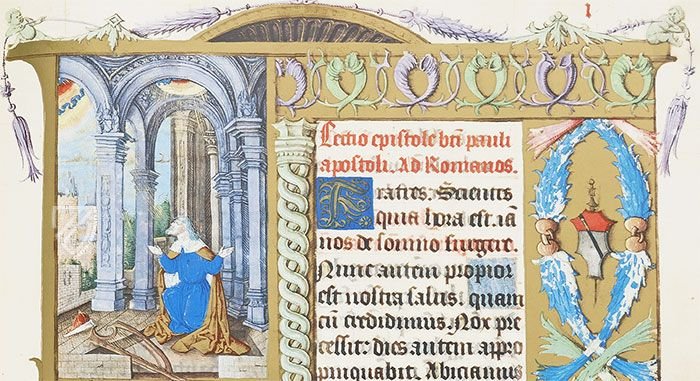 1
Lectio epistole bti pauli
apostoli. Ad Romanos.
Fratres: Scientes
quia hora est. iā
nos de somno surgere.
Nunc autem propior
est nostra salus. quam
cū credidimus Nox pre
cessit: dies autem appro
pinquabit. Abiciamus